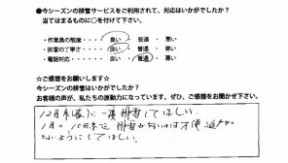 ●今シーズンの排雪サービスをご利用されて、対応はいかがでしたか？
当てはまるものに○を付けて下さい。
・作業員の態度・・・・ 良い ・ 普通 ・ 悪い
・排雪の丁寧さ・・・・ 良い ・ 普通 ・ 悪い
・電話対応・・・・・・ 良い ・ 普通 ・ 悪い
☆ご感想をお願いします☆
今シーズンの排雪はいかがでしたか？
お客様の声が、私たちの原動力になっています。ぜひ、ご感想をお聞かせ下さい。
12月末頃に一度排雪してほしい。
1月 10日 排雪がないのは不便
ようにしてほしい。